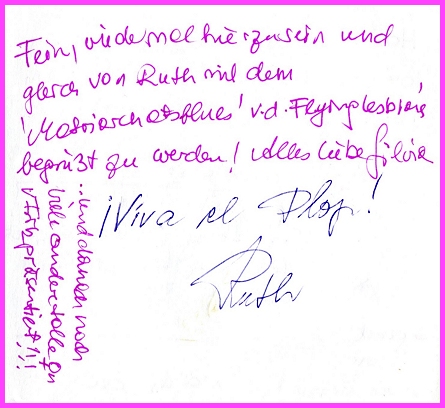 Fein, wiedermal hier zu sein und
gleich von Ruth mit dem
'Matriarchatsblues' v.d. Flying Lesbians
begrüßt zu werden! Alles Liebe Silvia
...und danach noch
viele andere tolle
präsentiert!!!
¡Viva el Plop!
Ruth